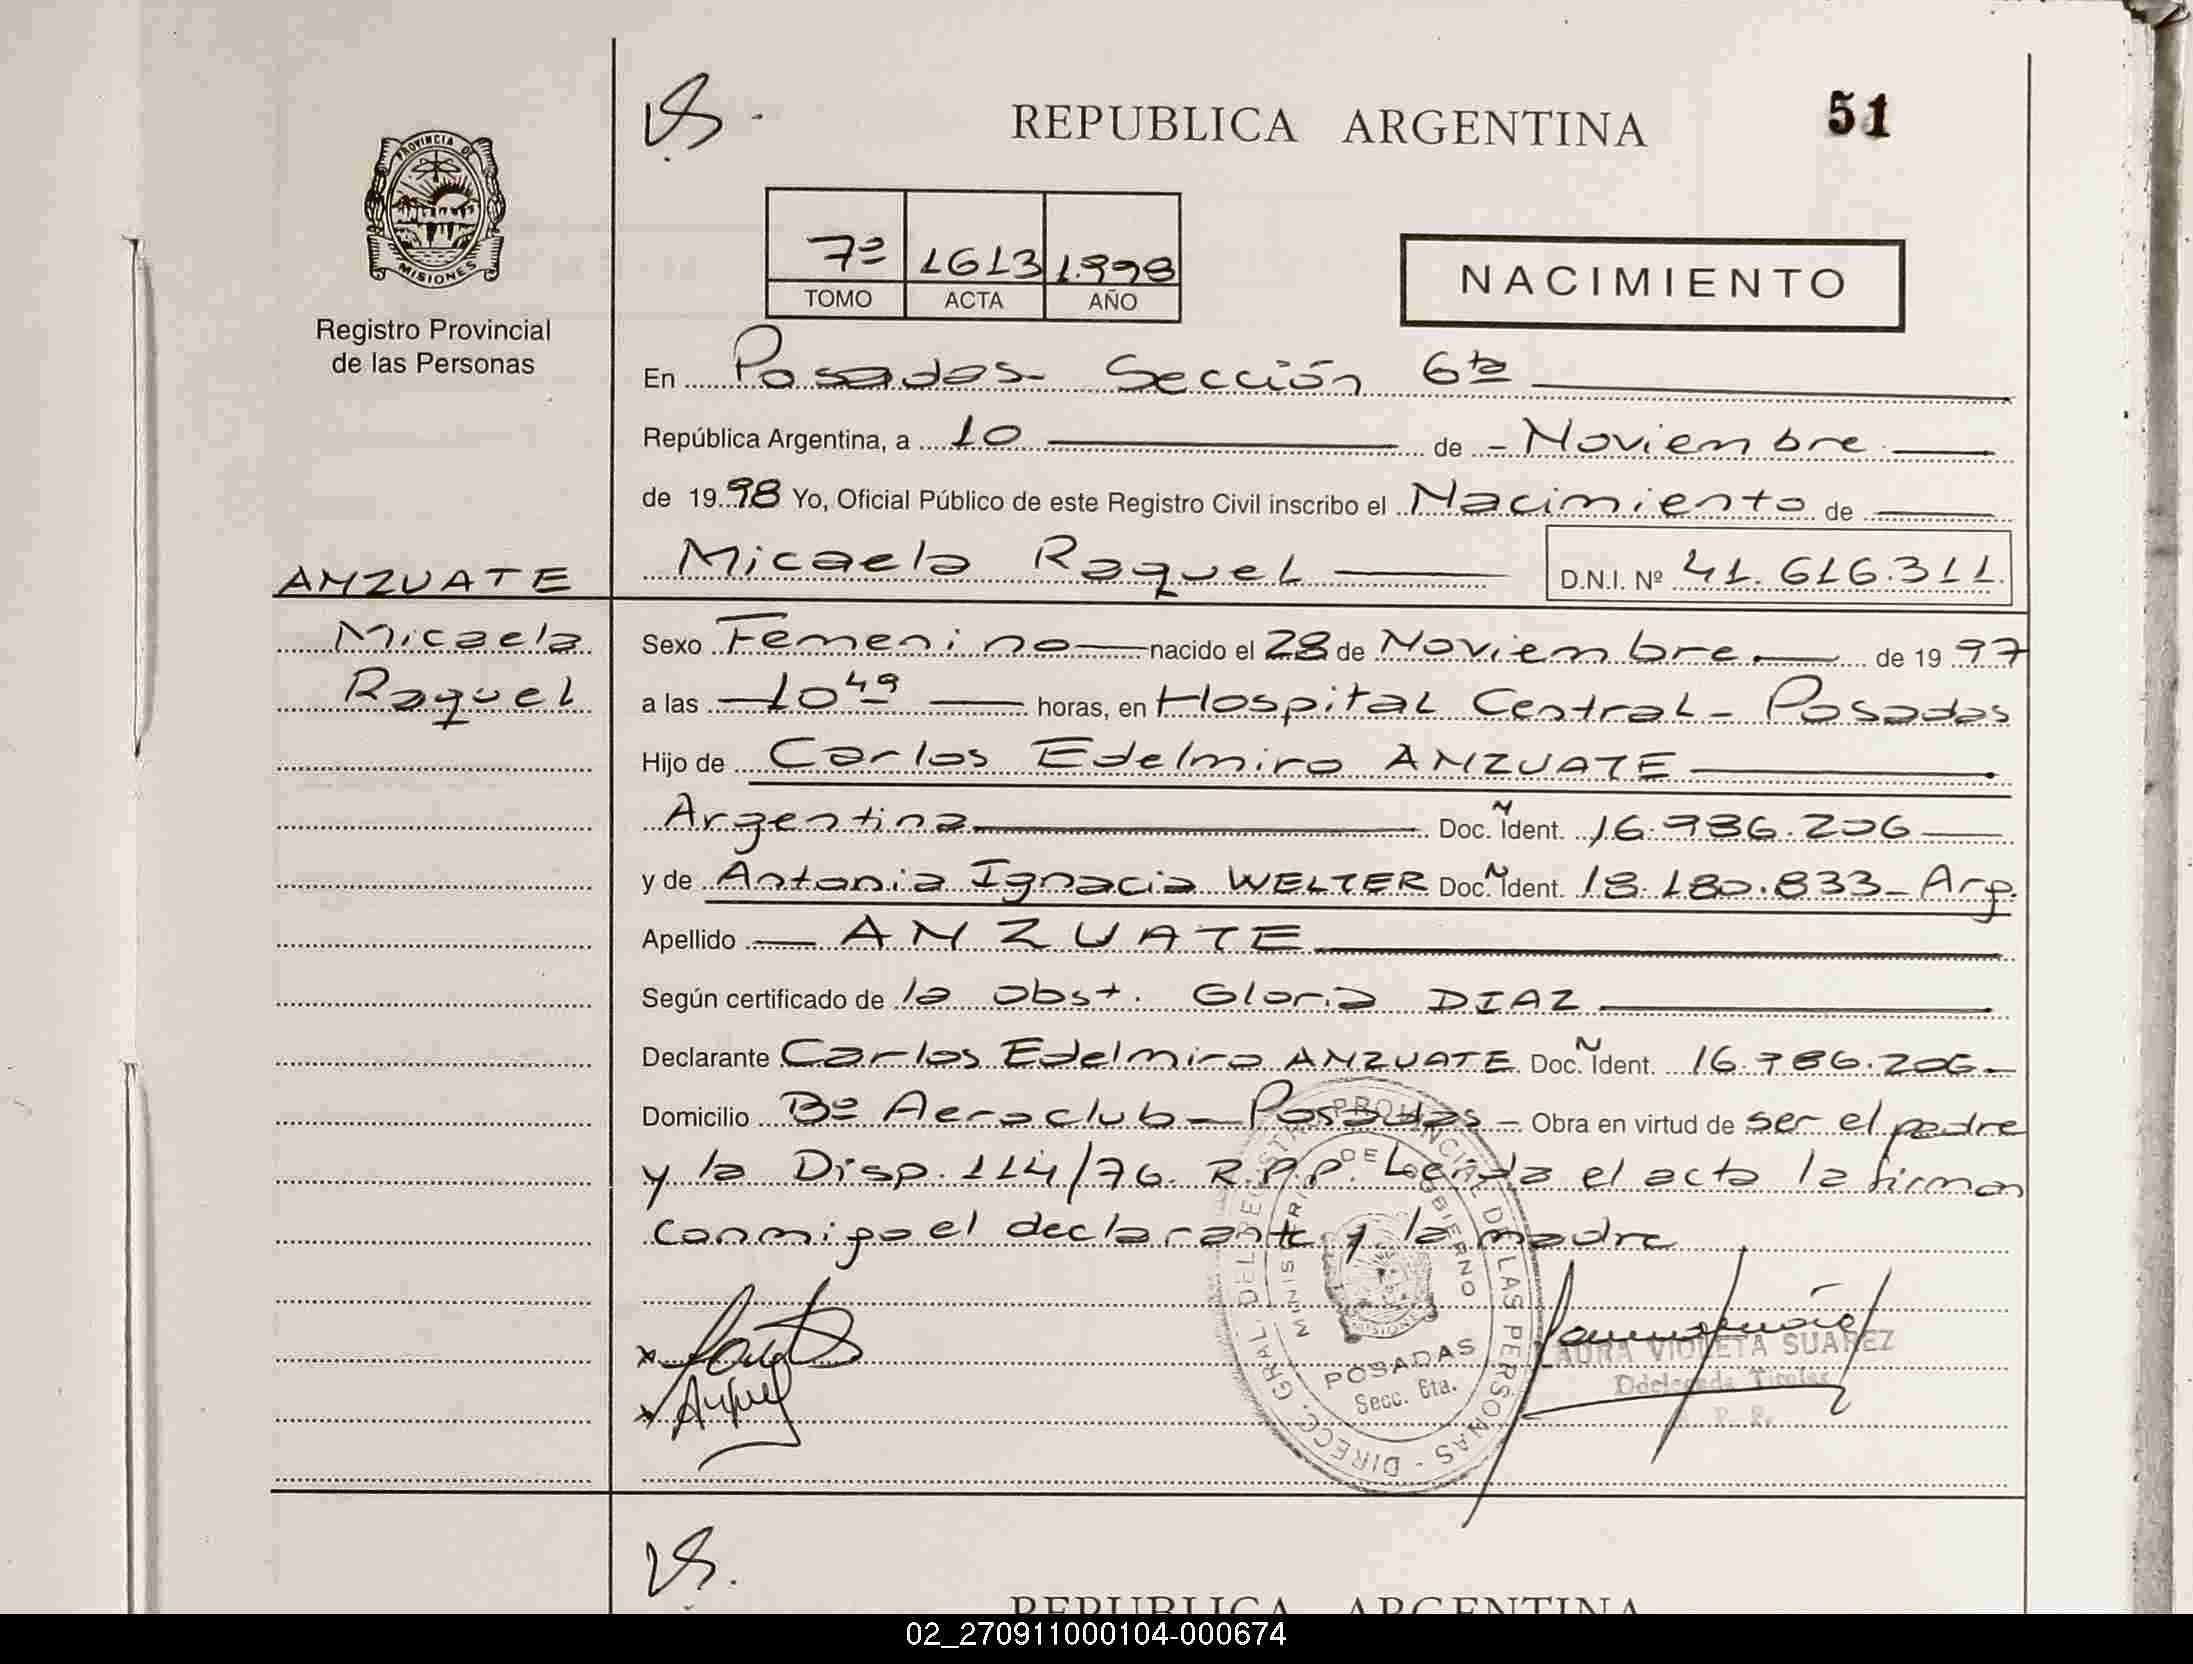 REPUBLICA ARGENTINA
51
PROVINCIA DE
MISIONES
Registro Provincial
de las Personas
7º 1613 1.998
TOMO ACTA AÑO
NACIMIENTO
En Posadas - Sección 6ta
República Argentina, a 10 de - Noviembre
de 19 98 Yo, Oficial Público de este Registro Civil inscribo el Nacimiento de
Micaela Raquel D.N.I. Nº 41.616.311.
ANZUATE
Micaela
Raquel
Sexo Femenino nacido el 28 de Noviembre de 19 97
a las 10 49 horas, en Hospital Central - Posadas
Hijo de Carlos Edelmiro ANZUATE
Argentina Doc. N Ident.
y de Antonia Ignacia WELTER Doc. N Ident. 18.180.833 - Arg.
Apellido ANZUATE
Según certificado de la obst. Gloria DIAZ
Declarante Carlos Edelmiro ANZUATE Doc. N Ident.
Domicilio Bº Aeroclub - Posadas - Obra en virtud de ser el padre
y la Disp. 114/76. R.P.P. Leída el acta la firman
conmigo el declarante y la madre
DIRECC. GRAL. DEL REGISTRO PROVINCIAL DE LAS PERSONAS
MINISTERIO DE GOBIERNO
MISIONES
POSADAS
Secc. 6ta.
LAURA VIOLETA SUAREZ
Titular
R. P. P.
REPUBLICA ARGENTINA
02_270911000104-000674